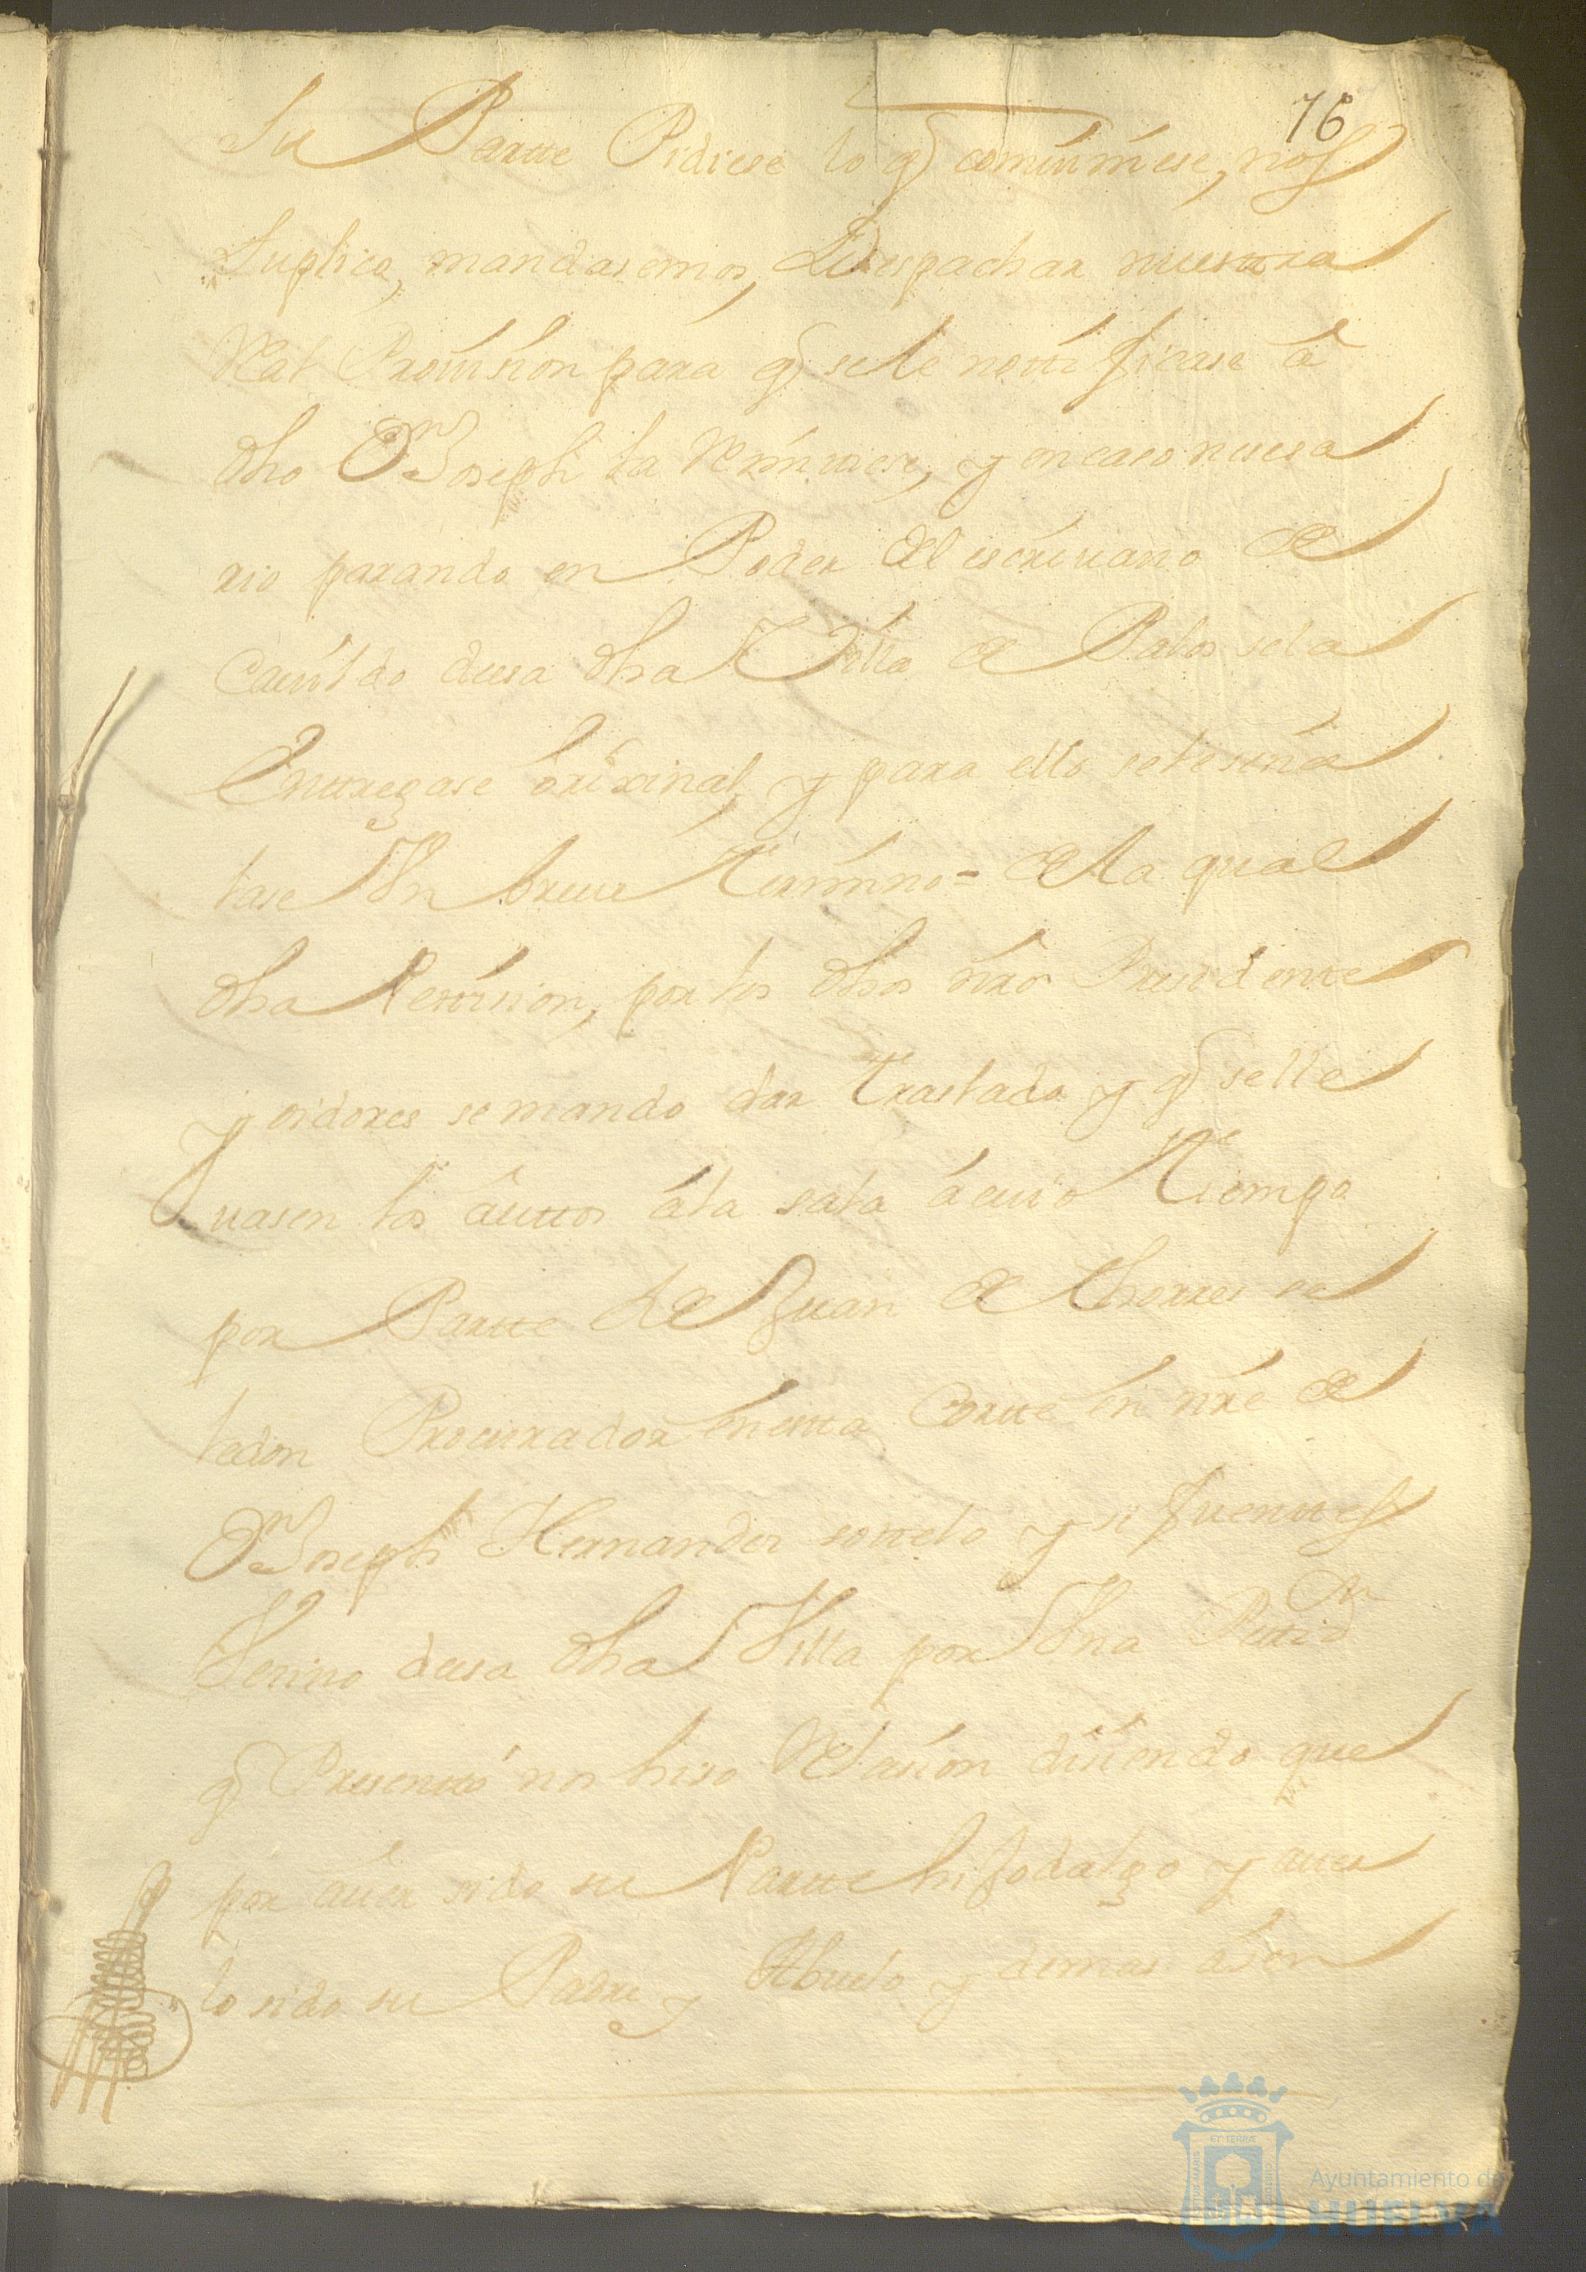 76
Su Partte Pidiese lo q combiniese, nos
Suplico, mandasemos, Despachar nuesttra
Real Provision para q se le nottificase â
dho Dn Joseph la Remitiese, y en caso nesesa
rio parando en Poder del escrivano de
Cavildo desa dha Villa de Palos se la
Enttregase orixinal, y para ello se le seña
lase Un breve Termino = de la qual
dha Petision, por los dhos nros Presidentte
y oidores se mando dar Traslado y q se lle
vasen los âuttos â la sala â cuio Tiempo
por Partte de Juan de Thorres
ledon Procurador en estta Cortte en nre de
Dn Joseph Hernandez sottelo y si fuenttes
Vecino desa dha Villa por Una Pettion
q Presentto nos hiso Relasion disiendo que
por aver sido su Partte hijodalgo y aver
lo sido su Padre y Abuelo y demas âsen
ET TERRAE
Ayuntamiento de
HUELVA